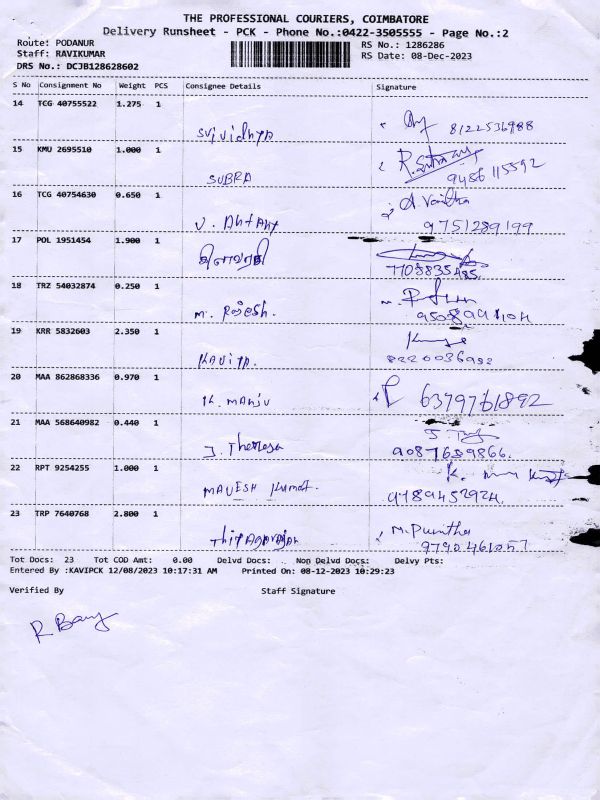 THE PROFESSIONAL COURIERS, COIMBATORE
Delivery Runsheet - PCK - Phone No.:0422-3505555 - Page No.:2
Route: PODANUR
RS No.: 1286286
Staff: RAVIKUMAR
RS Date: 08-Dec-2023
DRS No.: DCJB128628602
S No Consignment No Weight PCS Consignee Details Signature
14 TCG 40755522 1.275 1
Srividhya 8122536988
15 KMU 2695510 1.000 1
SUBRA 9486115592
16 TCG 40754630 0.650 1
V. Antany A. Vanitha
9751289199
17 POL 1951454 1.900 1
இளவரசி 7708835485
18 TRZ 54032874 0.250 1
M. Rajesh.
19 KRR 5832603 2.350 1
Kavita. 8220036992
20 MAA 862868336 0.970 1
K. Manju 6379761892
21 MAA 568640982 0.440 1
J. Theresa 9087659866.
22 RPT 9254255 1.000 1
MAVESH Kumar. 9789452924
23 TRP 7640768 2.800 1
Thiyagarajan M. Punitha
9790461057
Tot Docs: 23 Tot COD Amt: 0.00 Delvd Docs: Non Delvd Docs: Delvy Pts:
Entered By :KAVIPCK 12/08/2023 10:17:31 AM Printed On: 08-12-2023 10:29:23
Verified By Staff Signature